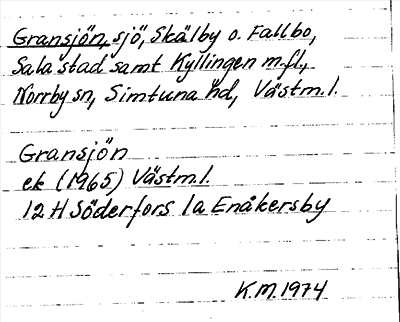 Gransjön, sjö, Skälby o. Fallbo,
Sala stad samt Kyllingen m.fl.,
Norrby sn, Simtuna hd, Västm.l.
Gransjön
ek (1965) Västm.l.
12 H Söderfors 1a Enåkersby
K.M.1974